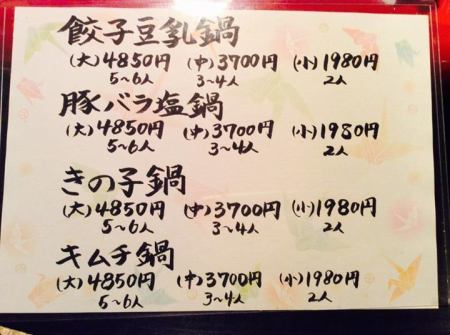 餃子豆乳鍋
(大)4850円 (中)3700円 (小)1980円
5~6人 3~4人 2人
豚バラ塩鍋
(大)4850円 (中)3700円 (小)1980円
5~6人 3~4人 2人
きの子鍋
(大)4850円 (中)3700円 (小)1980円
5~6人 3~4人 2人
キムチ鍋
(大)4850円 (中)3700円 (小)1980円
5~6人 3~4人 2人